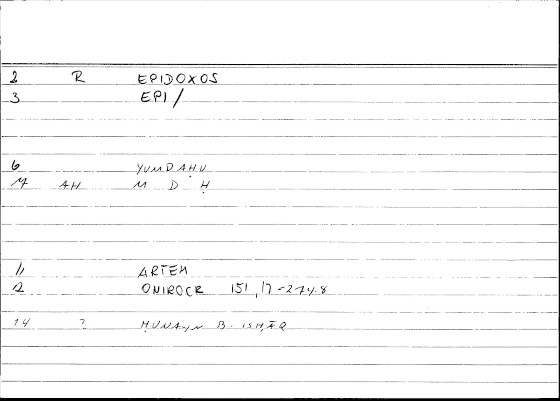 2 R EPIDOXOS
3 EPI/
6 YUMDAḤU
7 AH M D Ḥ
11 ARTEM
12 ONIROCR 151,17-274.8
14 ? ḤUNAYN B. ISḤĀQ